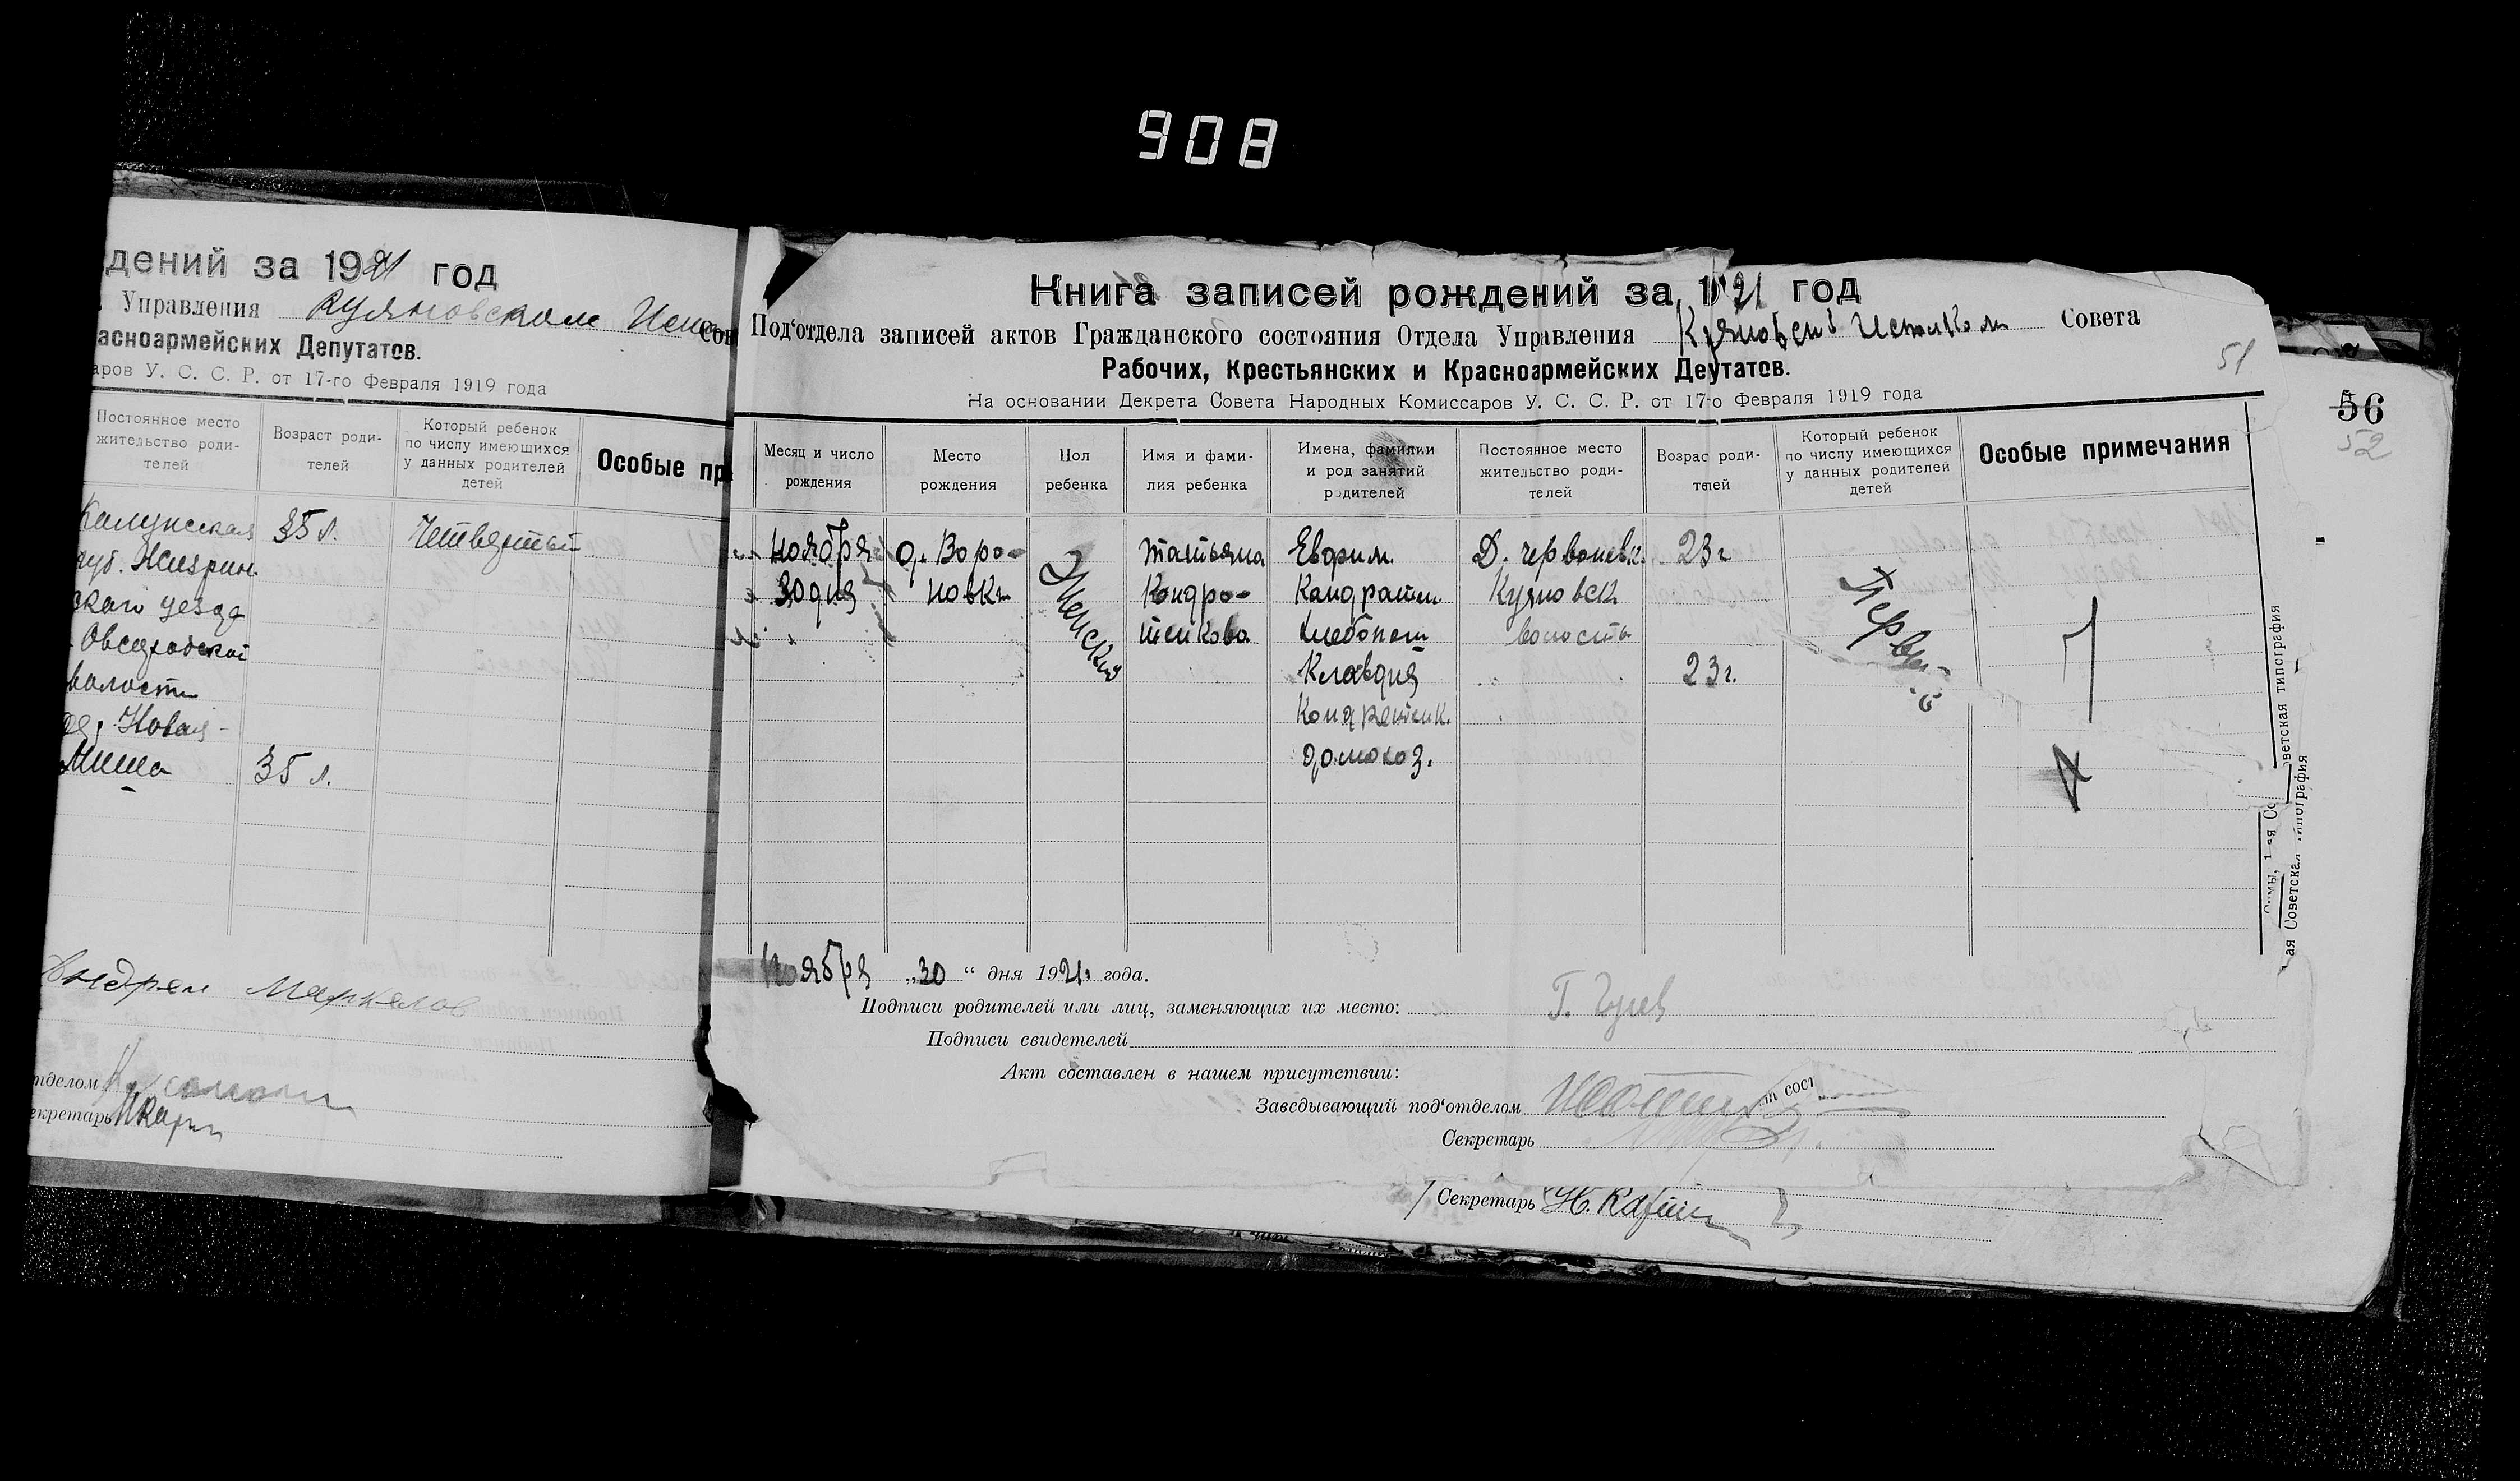 908
дений за 1921 год
Управления Куяновском
Сов
асноармейских Депутатов.
аров У. С. С. Р. от 17-го Февраля 1919 года
Постоянное место
жительство роди-
телей
Возраст роди-
телей
Который ребенок
по числу имеющихся
у данных родителей
детей
Особые пр
Калужская
губ. Жиздрин
скаго уезда
волости
де. Новая
35 л.
35 л.
Четвертый
Андрей Маркелов
тделом
екретарь
Книга записей рождений за 1921 год
Под‘отдела записей актов Гражданского состояния Отдела Управления Куяновск Исполком Совета
Рабочих, Крестьянских и Красноармейских Депутатов.
На основании Декрета Совета Народных Комиссаров У. С. С. Р. от 17-го Февраля 1919 года
51
56
52
Месяц и число
рождения
Место
рождения
Пол
ребенка
Имя и фами-
лия ребенка
Имена, фамилии
и род занятий
родителей
Постоянное место
жительство роди-
телей
Возраст роди-
телей
Который ребенок
по числу имеющихся
у данных родителей
детей
Особые примечания
Ноября
30 дня
д. Воро-
новка
Женский
Татьяна
Кондра-
тенкова
Ефрим
Кандратен
хлебопаш
Клавдия
Кондратенк.
домохоз.
Д. червоневк.
Куяновск
волость
23 г
23 г.
Первый
Ноября „30“ дня 1921 года.
Подписи родителей или лиц, заменяющих их место:
Подписи свидетелей
Акт составлен в нашем присутствии:
Заведывающий под‘отделом
т сост
Секретарь
Секретарь
Сумы, 1-ая Со
ветская типография
ая Советская типография